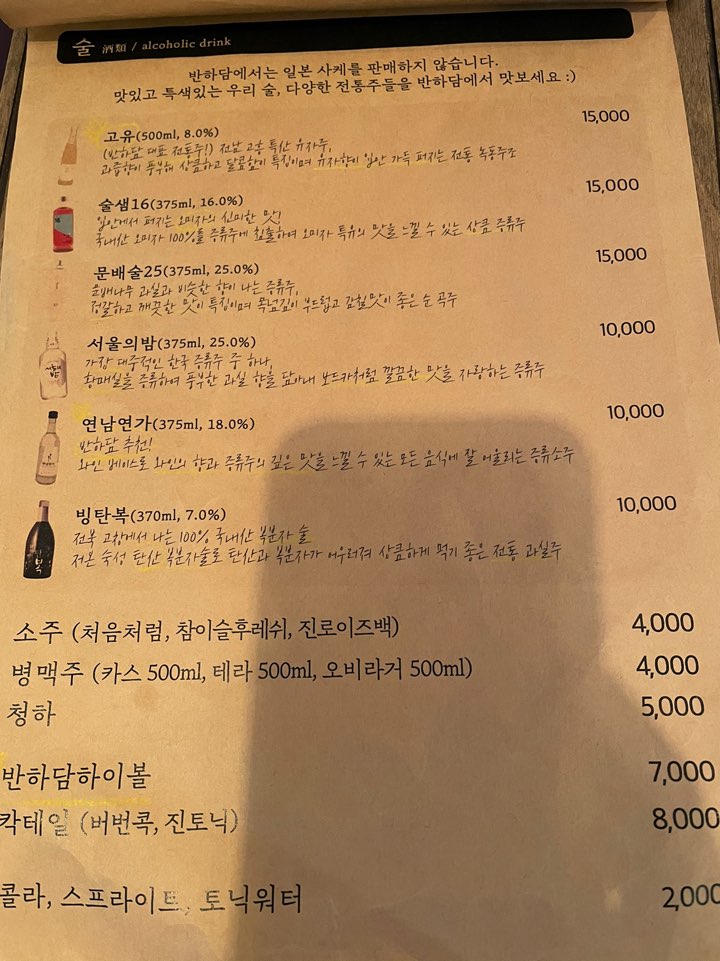 술 酒類 / alcoholic drink
반하담에서는 일본 사케를 판매하지 않습니다.
맛있고 특색있는 우리 술, 다양한 전통주들을 반하담에서 맛보세요 :)
고유(500ml, 8.0%) 15,000
(반하담 대표 전통주!) 전남 고흥 특산 유자주,
과즙향이 풍부해 상큼하고 달콤함이 특징이며 유자향이 입안 가득 퍼지는 전통 녹동주조
술샘16(375ml, 16.0%) 15,000
입안에서 퍼지는 오미자의 신미한 맛!
국내산 오미자 100%를 증류주에 침출하여 오미자 특유의 맛을 느낄 수 있는 상큼 증류주
문배술25(375ml, 25.0%) 15,000
문배나무 과실과 비슷한 향이 나는 증류주,
정갈하고 깨끗한 맛이 특징이며 목넘김이 부드럽고 감칠맛이 좋은 순 곡주
서울의밤(375ml, 25.0%) 10,000
가장 대중적인 한국 증류주 중 하나,
황매실을 증류하여 풍부한 과실 향을 담아내 보드카처럼 깔끔한 맛을 자랑하는 증류주
연남연가(375ml, 18.0%) 10,000
반하담 추천!
와인 베이스로 와인의 향과 증류주의 깊은 맛을 느낄 수 있는 모든 음식에 잘 어울리는 증류소주
빙탄복(370ml, 7.0%) 10,000
전북 고창에서 나는 100% 국내산 복분자 술
저온 숙성 탄산 복분자술로 탄산과 복분자가 어우러져 상큼하게 먹기 좋은 전통 과실주
소주 (처음처럼, 참이슬후레쉬, 진로이즈백) 4,000
병맥주 (카스 500ml, 테라 500ml, 오비라거 500ml) 4,000
청하 5,000
반하담하이볼 7,000
칵테일 (버번콕, 진토닉) 8,000
콜라, 스프라이트, 토닉워터 2,000